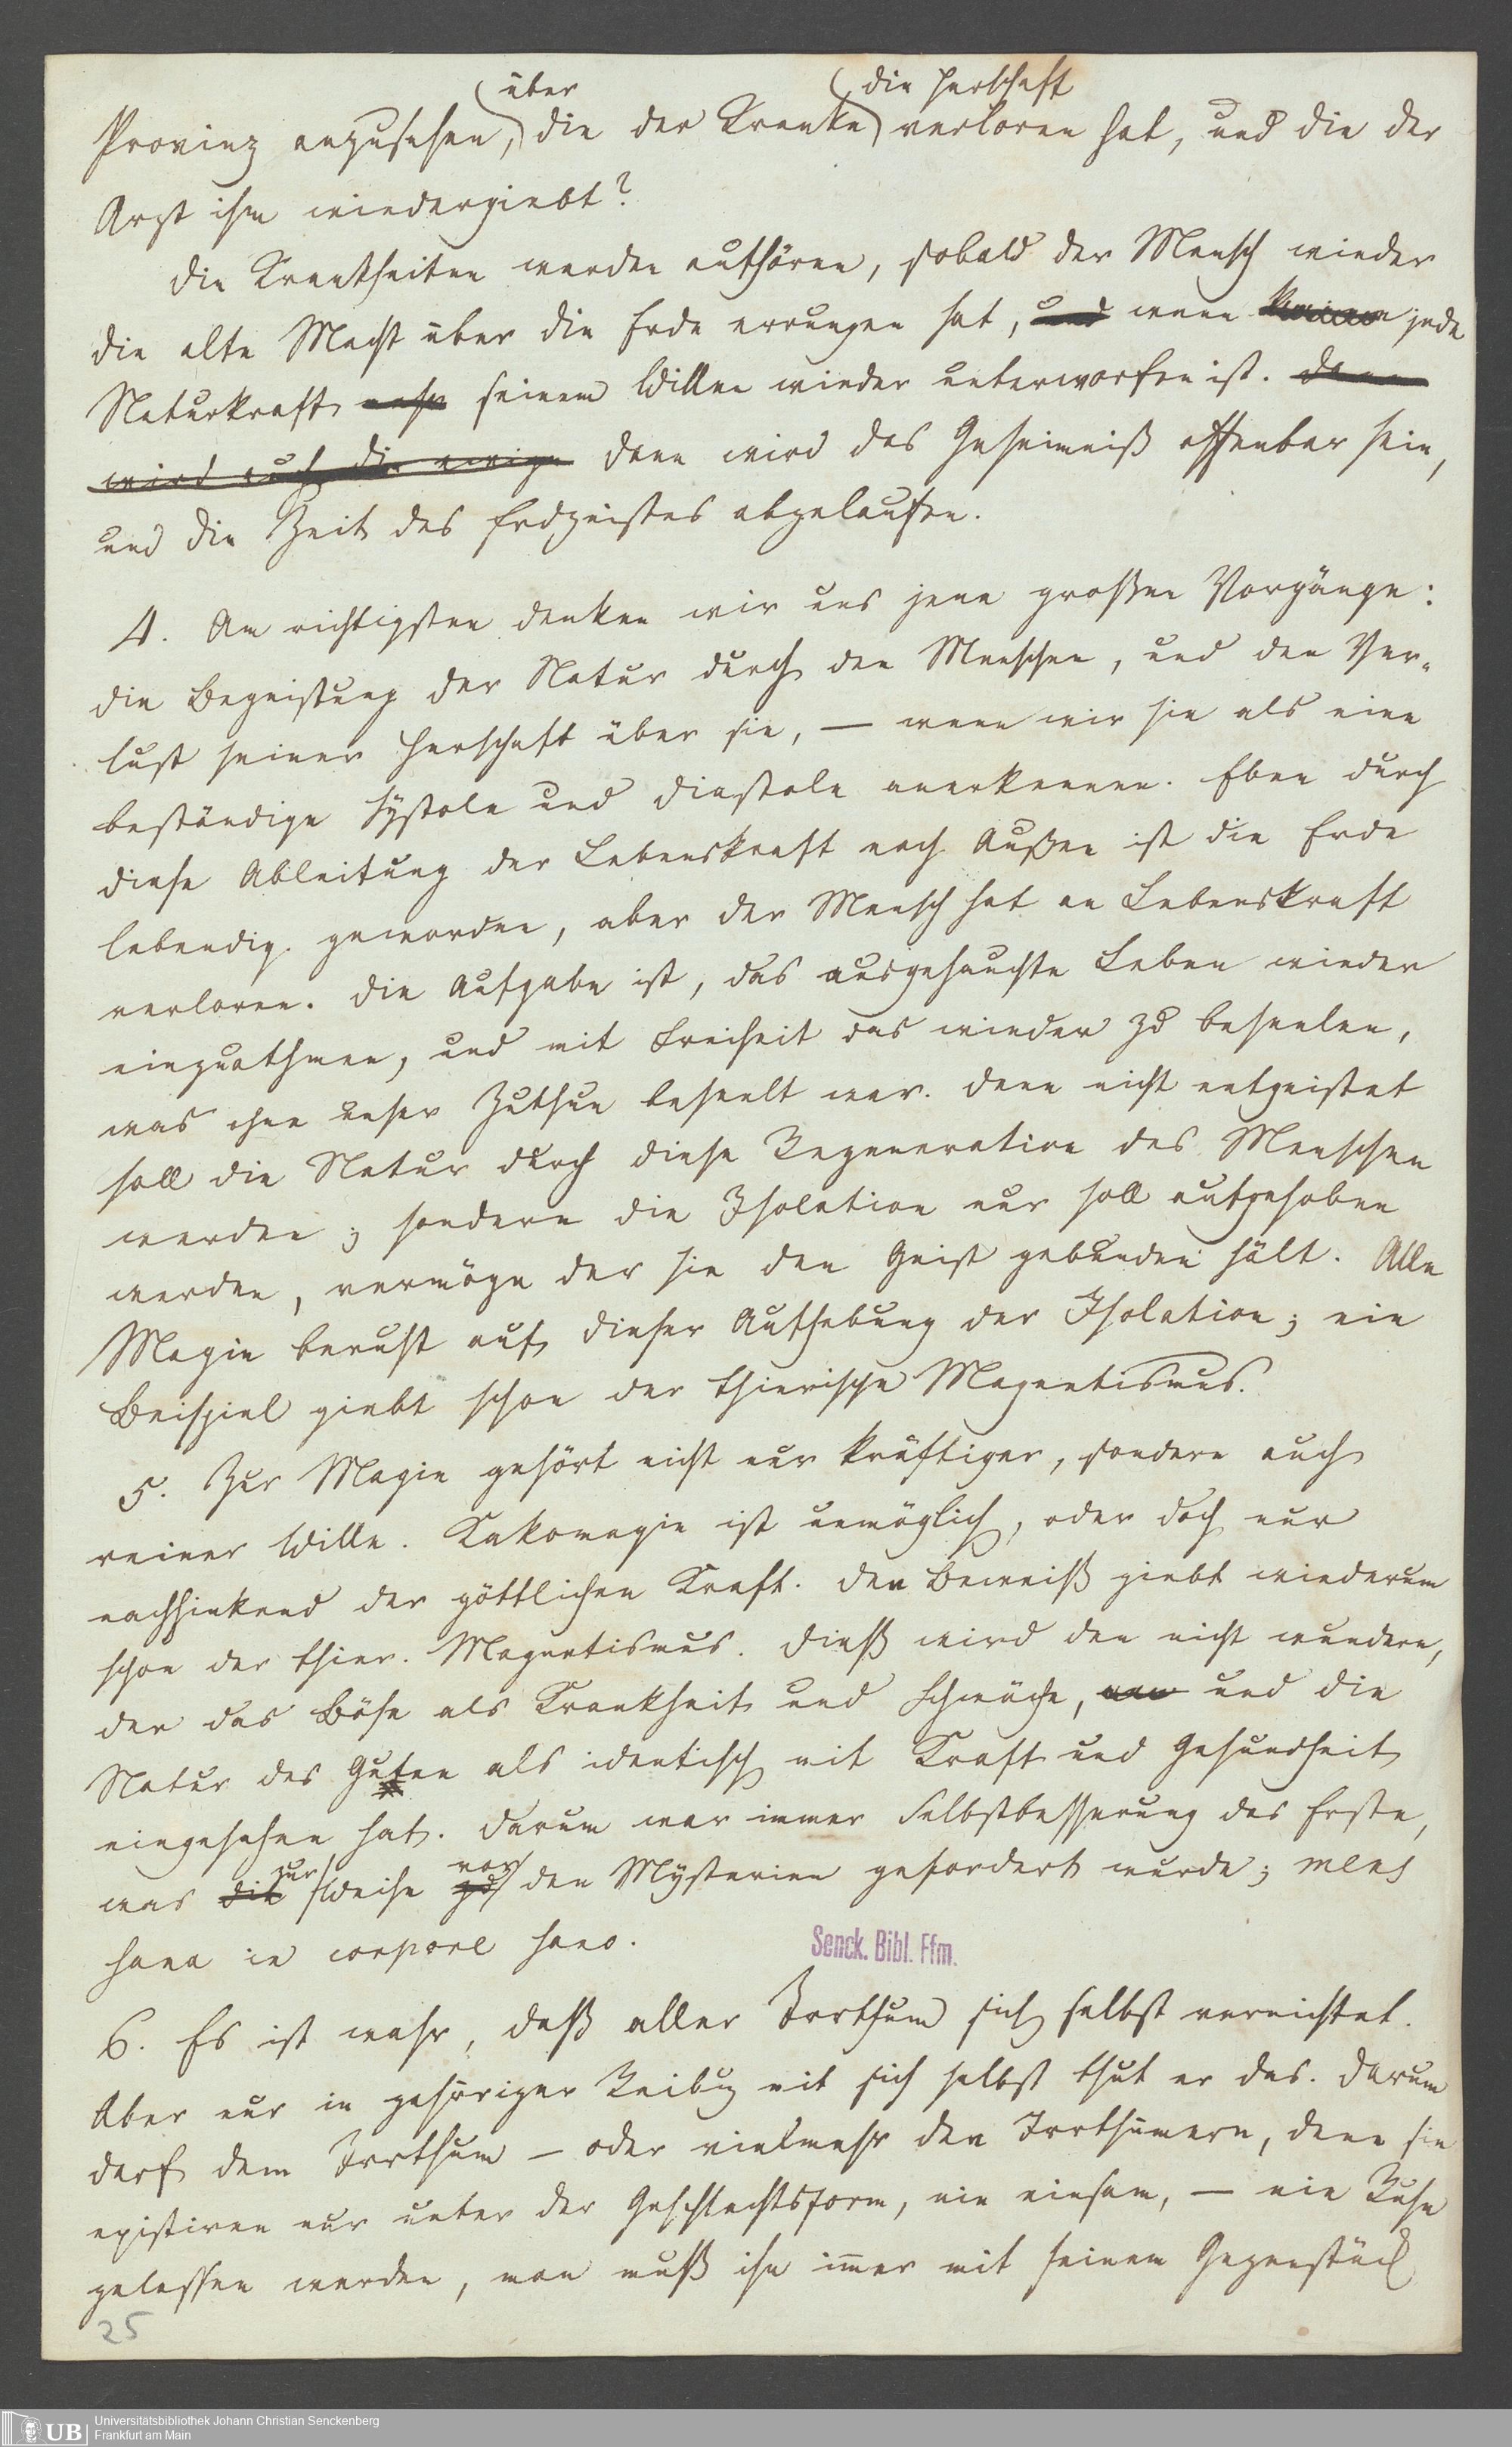 über die Herschaft
Provinz anzusehen, die der Kranke verloren hat, und die der
Arzt ihm wiedergiebt?
Die Krankheiten werden aufhören, sobald der Mensch wieder
die alte Macht über die Erde errungen hat, und wenn jede
Naturkraft mehr seinem Willen wieder unterworfen ist. Dann
wird auch die ewige Dann wird das Geheimniß offenbar sein,
und die Zeit des Erdgeistes abgelaufen.
4. Am richtigsten denken wir uns jene großen Vorgänge:
die Begeistung der Natur durch den Menschen, und den Ver-
lust seiner Herschaft über sie, — wenn wir sie als eine
beständige Systole und Diastole anerkennen. Eben durch
diese Ableitung der Lebenskraft nach Außen ist die Erde
lebendig geworden, aber der Mensch hat an Lebenskraft
verloren. Die Aufgabe ist, das ausgehauchte Leben wieder
einzuathmen, und mit Freiheit das wieder zu beseelen,
was ohne unser Zuthun beseelt war. Denn nicht entgeistet
soll die Natur durch diese Regeneration des Menschen
werden; sondern die Isolation nur soll aufgehoben
werden, vermöge der sie den Geist gebunden hält. Alle
Magie beruht auf dieser Aufhebung der Isolation; ein
Beispiel giebt schon der thierische Magnetismus.
5. Zur Magie gehört nicht nur kräftiger, sondern auch
reiner Wille. Kakomagie ist unmöglich, oder doch nur
nachhinkend der göttlichen Kraft. Den Beweiß giebt wiederum
schon der thier. Magnetismus. Dieß wird den nicht wundern,
der das Böse als Krankheit und Schwäche, und die
Natur des Guten als identisch mit Kraft und Gesundheit
eingesehen hat. Darum war immer Selbstbesserung das Erste,
zur vor
was die Weihe zu den Mysterien gefordert wurde; mens
sana in corpore sano.
Senck. Bibl. Ffm.
6. Es ist wahr, daß aller Irrthum sich selbst vernichtet.
Aber nur in gehöriger Reibung mit sich selbst thut er das. Darum
darf dem Irrthum — oder vielmehr den Irrthümern, denn sie
existiren nur unter der Geschlechtsform, nie einsam, — nie Ruhe
gelassen werden, man muß ihn immer mit seinem Gegenstück
25
UB
Universitätsbibliothek Johann Christian Senckenberg
Frankfurt am Main